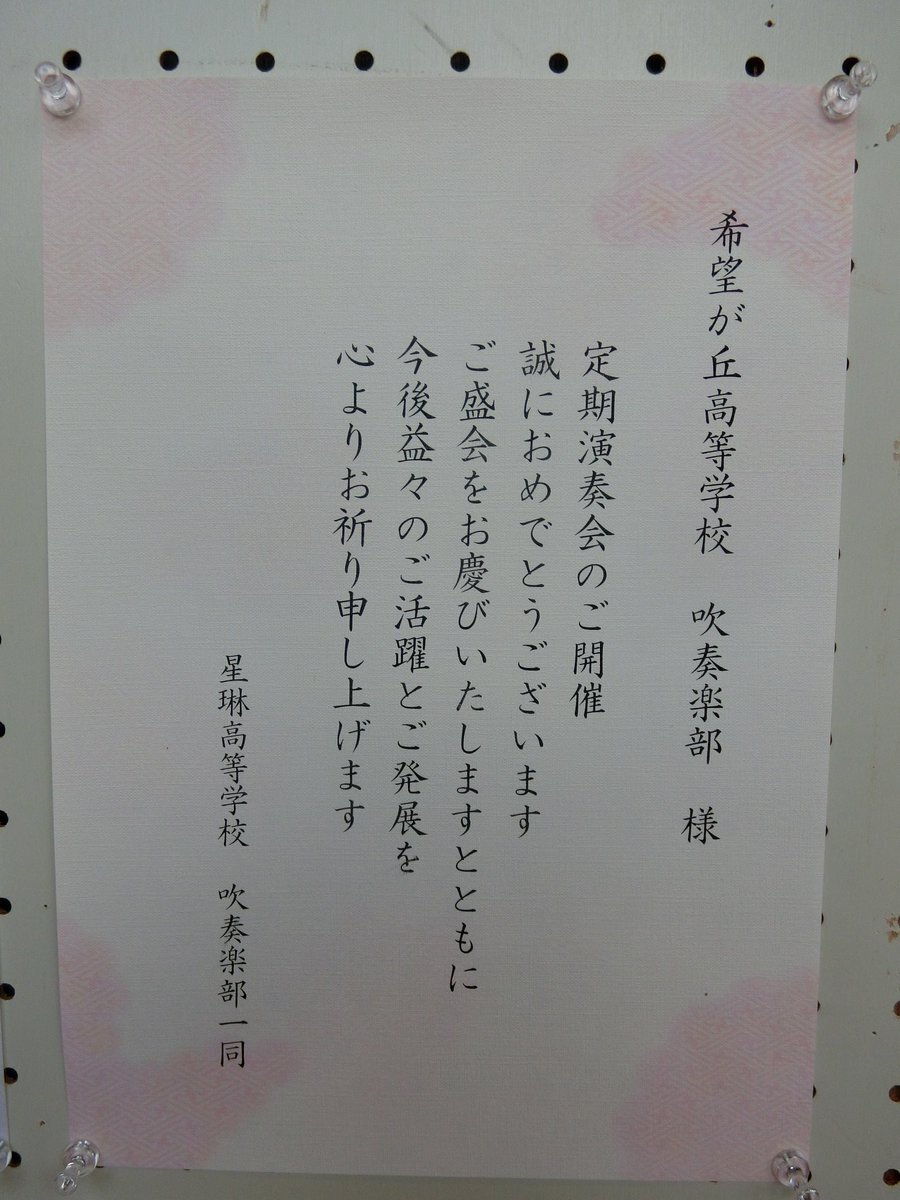 希望が丘高等学校　吹奏楽部　様
定期演奏会のご開催
誠におめでとうございます
ご盛会をお慶びいたしますとともに
今後益々のご活躍とご発展を
心よりお祈り申し上げます
星琳高等学校　吹奏楽部一同